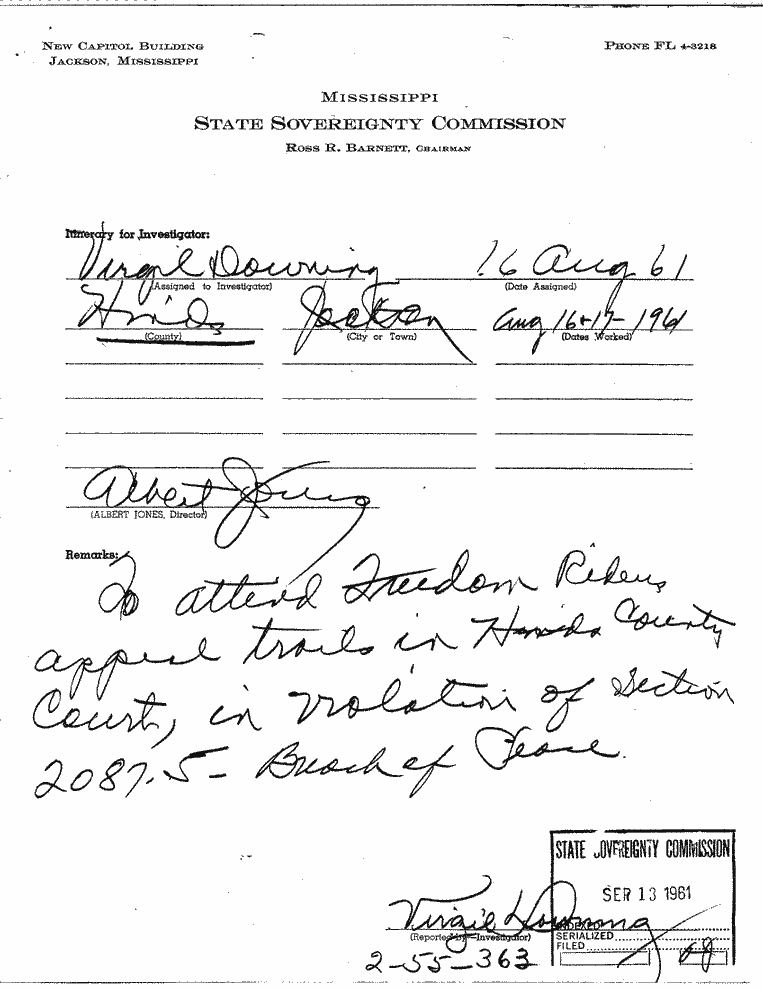 NEW CAPITOL BUILDING
JACKSON, MISSISSIPPI
PHONE FL 4-3218
MISSISSIPPI
STATE SOVEREIGNTY COMMISSION
ROSS R. BARNETT, CHAIRMAN
Itinerary for Investigator:
Virgil Downing 16 Aug 61
(Assigned to Investigator) (Date Assigned)
Hinds Jackson Aug 16+17-1961
(County) (City or Town) (Dates Worked)
Albert Jones
(ALBERT JONES, Director)
Remarks:
To attend Freedom Riders
appeal trails in Hinds County
Court, in violation of Section
2087.5- Breach of Peace.
STATE SOVEREIGNTY COMMISSION
SEP 13 1961
Virgil Downing
INDEXED
(Reported by—Investigator)
SERIALIZED
FILED
2-55-363